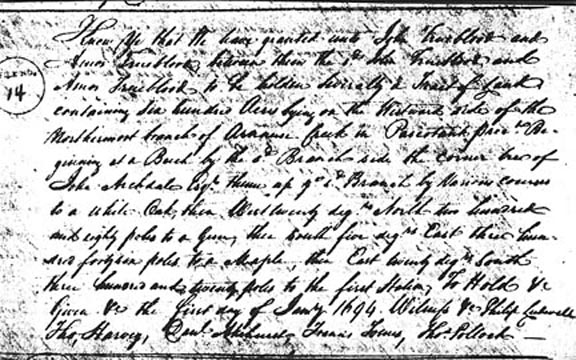 Know Ye that We have granted unto John Trueblood and
Amos Trueblood, between them the sd. John Trueblood and
Amos Trueblood to be holden severally a Tract of Land
containing Six hundred Acres lying on the Westward side of the
14
Northermost branch of Arenuse Creek in Pascotank prec.t Be-
ginning at a Beech by the sd. Branch side the corner tree of
John Archdale Esqr. thence up ye sd. Branch by Various courses
to a White Oak, then West twenty degrs. North two hundred
and eighty poles to a Gum, then South five degrs. East three hun-
dred forty six poles to a Maple, then East twenty degrs. South
three hundred and twenty poles to the first Station, To Hold &c
Given &c the first day of Jany 1694. Witness &c Philip Ludwell
Tho. Harvey, Danl. Akehurst, Francis Tomes, Tho. Pollock —